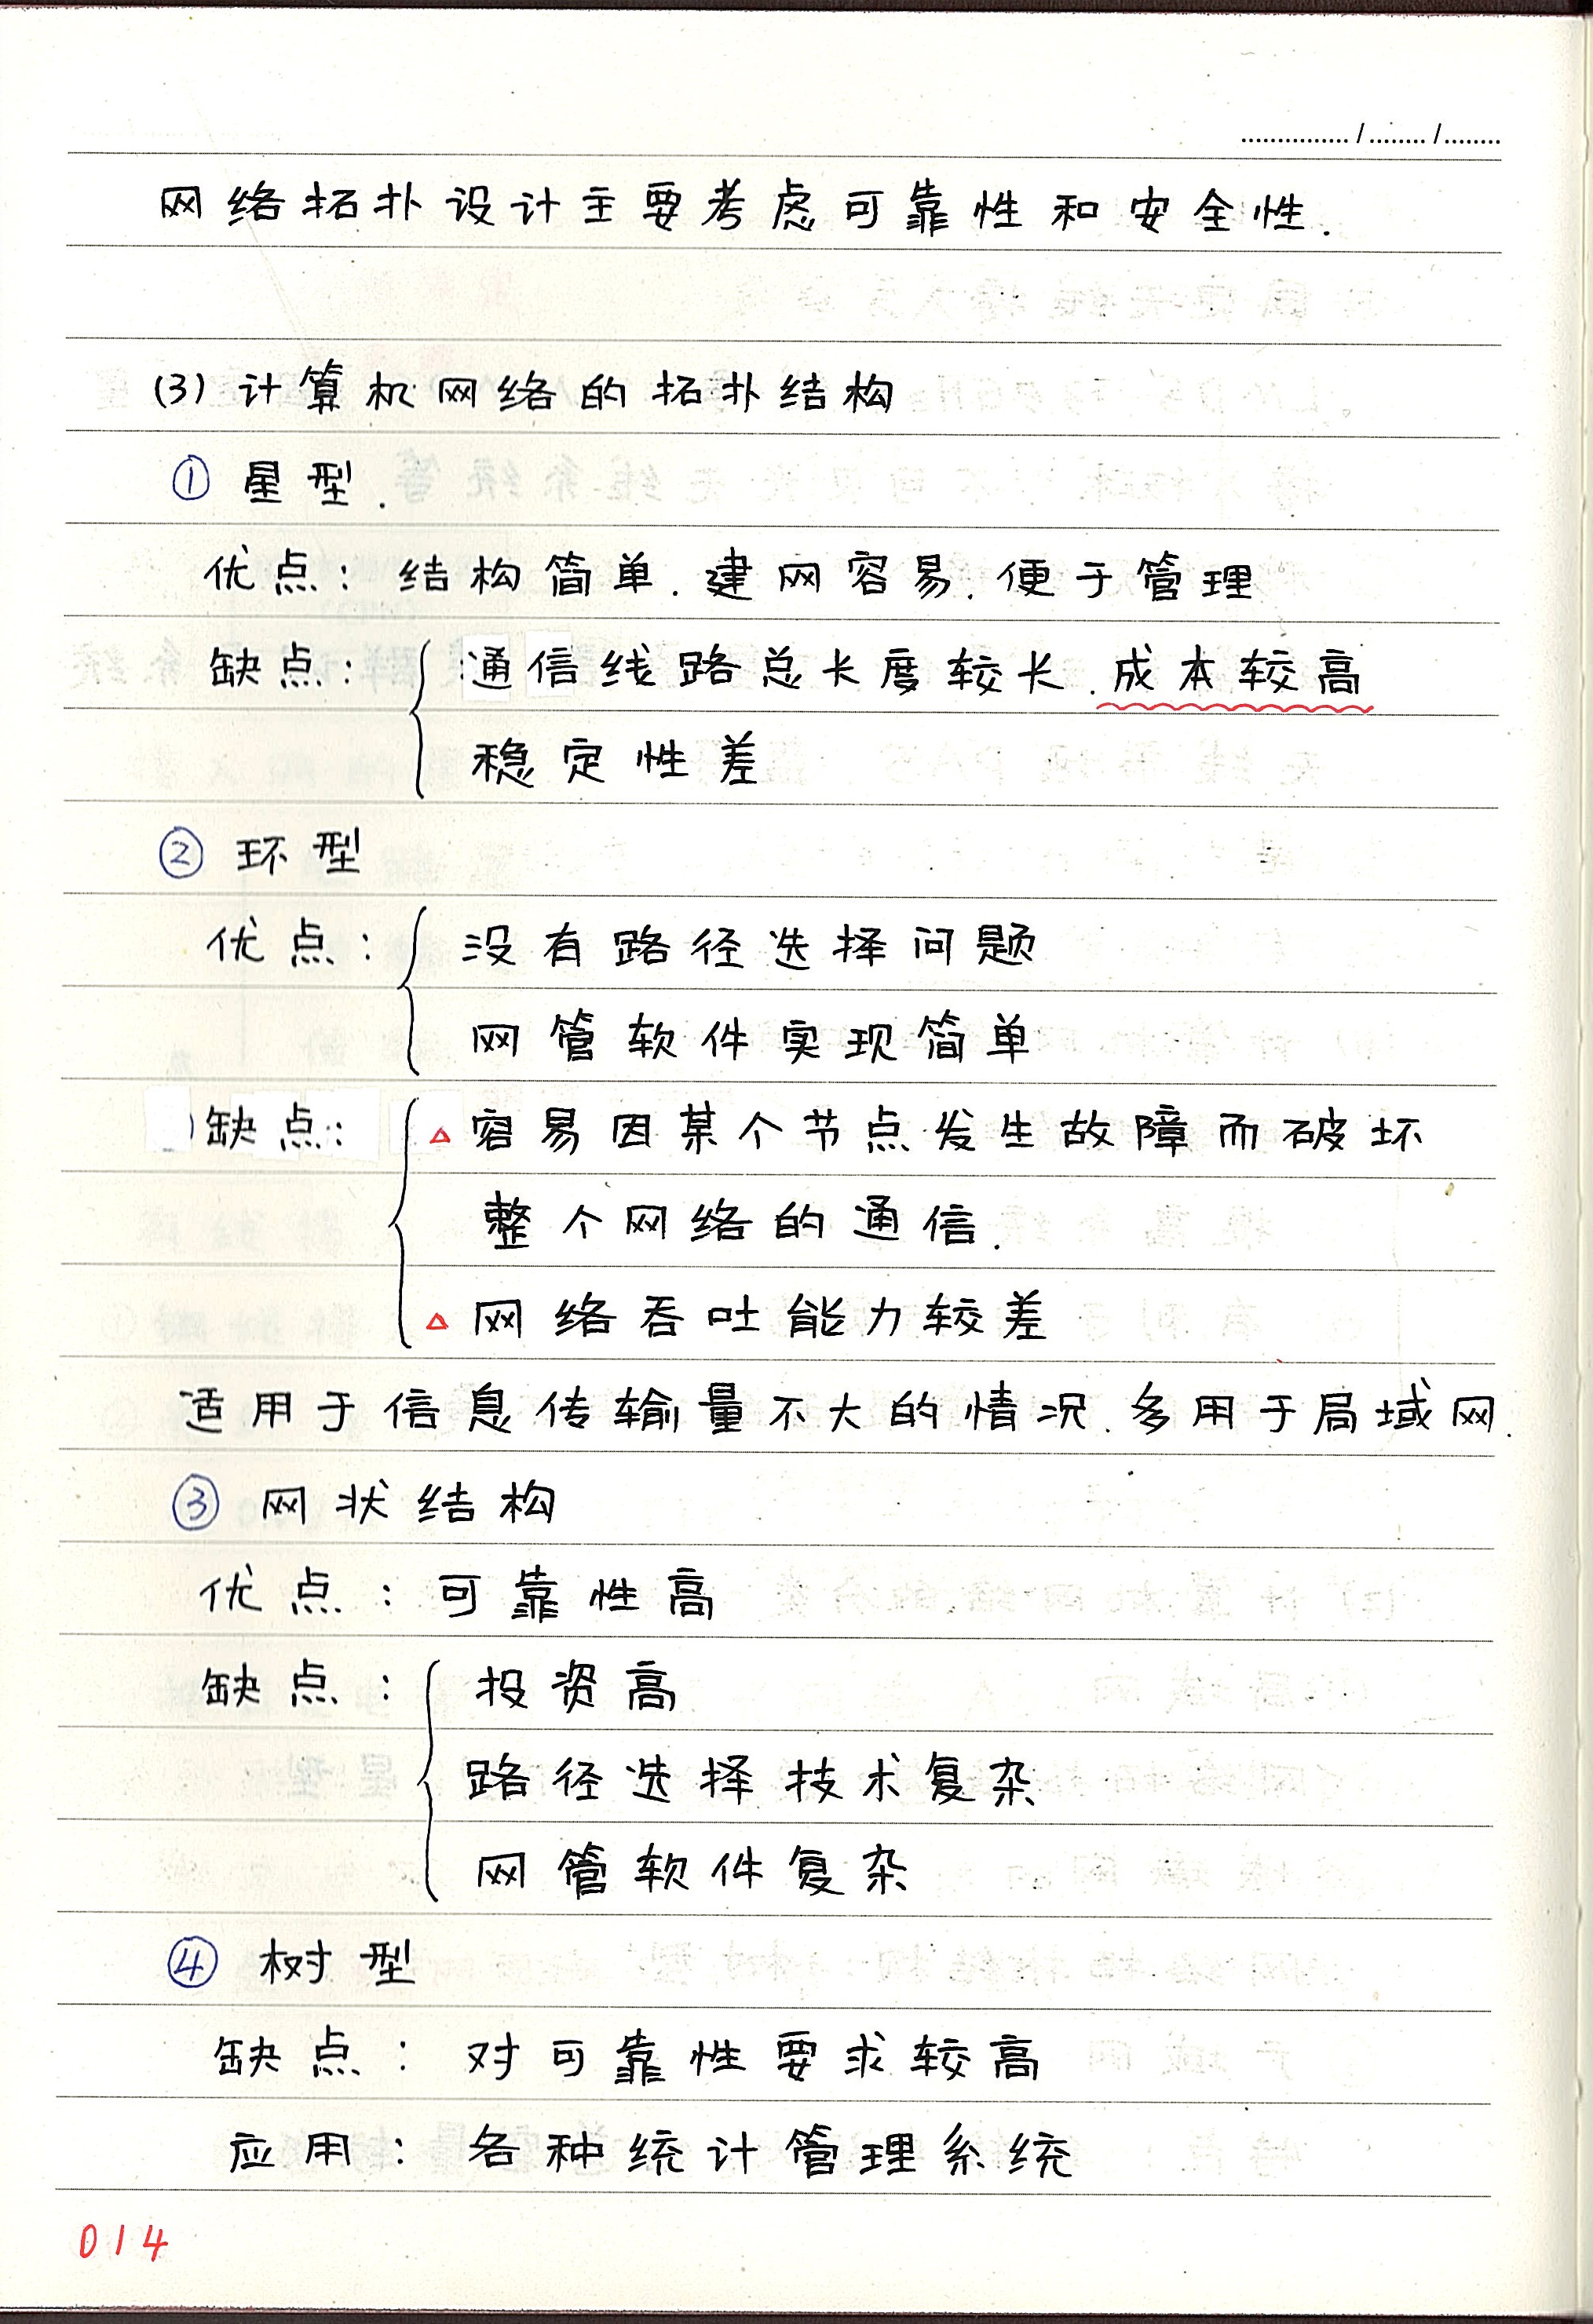 网络拓扑设计主要考虑可靠性和安全性.
(3) 计算机网络的拓扑结构
① 星型.
优点: 结构简单.建网容易.便于管理
缺点: 通信线路总长度较长.成本较高
稳定性差
② 环型
优点: 没有路径选择问题
网管软件实现简单
缺点: △ 容易因某个节点发生故障而破坏
整个网络的通信.
△ 网络吞吐能力较差
适用于信息传输量不大的情况.多用于局域网.
③ 网状结构
优点: 可靠性高
缺点: 投资高
路径选择技术复杂
网管软件复杂
④ 树型
缺点: 对可靠性要求较高
应用: 各种统计管理系统
014